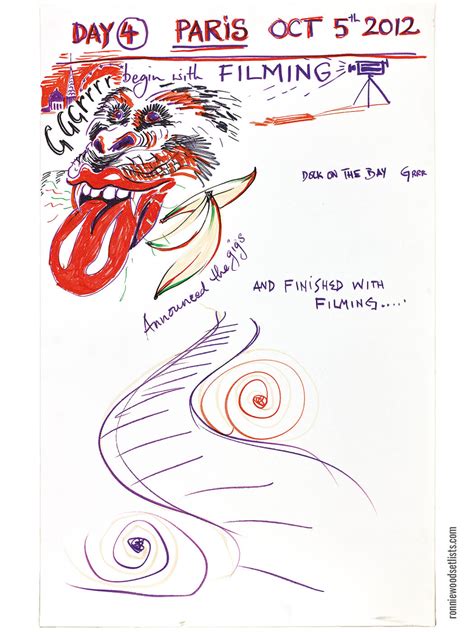 DAY 4 PARIS OCT 5th 2012
begin with FILMING
GGrrrr
DOCK ON THE BAY Grrr
Announced the gigs
AND FINISHED WITH
FILMING.....
ronniewoodsetlists.com